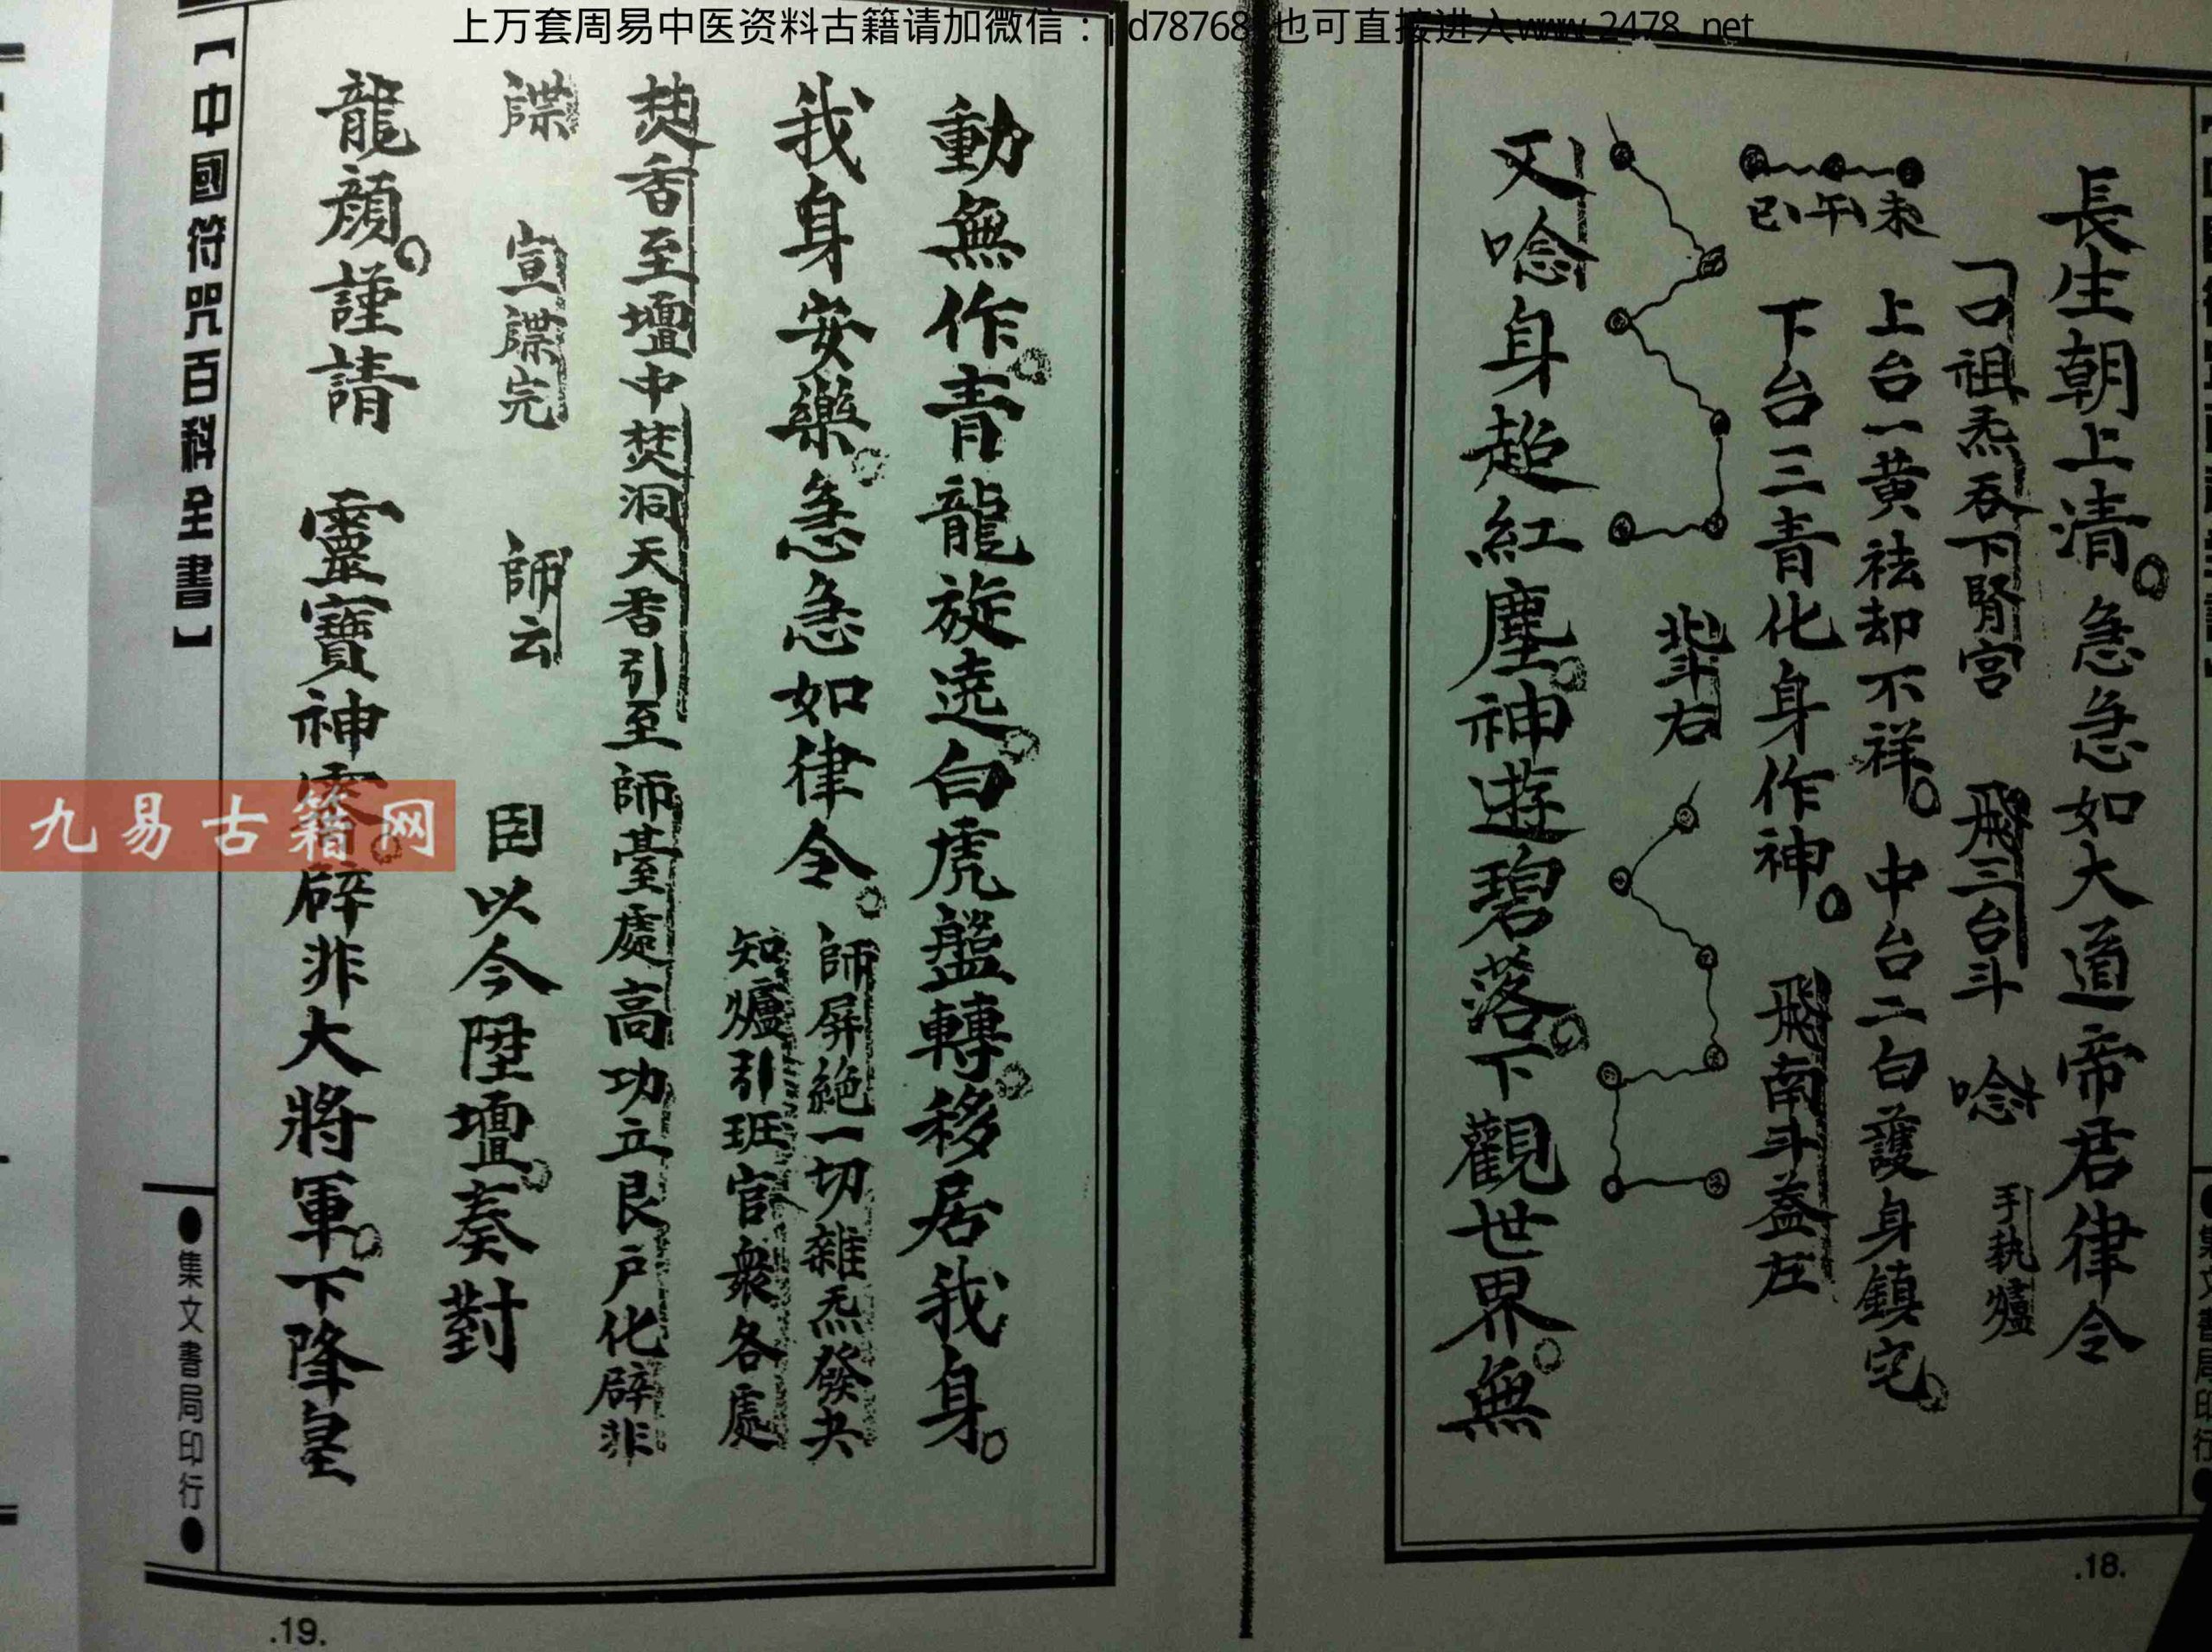 上万套周易中医资料古籍请加微信:
也可直接进入www.2478.net
長生朝上清。急急如大道帝君律令
祖炁吞下腎宫 飛三台斗 唸 手執爐
上台一黄祛却不祥。中台二白護身鎮宅。
未
午
巳
下台三青化身作神。 飛南斗蓋左
北斗右
又唸身超紅塵。神遊碧落。下觀世界。無
.18.
動無作。青龍旋遶。白虎盤轉。移居我身。
我身安樂。急急如律令。師屏絶一切雜炁發夬
知爐引班官衆各處
焚香至壇中焚洞天香引至師臺處高功立艮户化辟非
牒 宣牒完 師云 臣以今陞壇。奏對
龍顔。謹請 靈寶神霄。辟非大將軍。下降皇
【中國符咒百科全書】
●集文書局印行●
.19.
九易古籍网